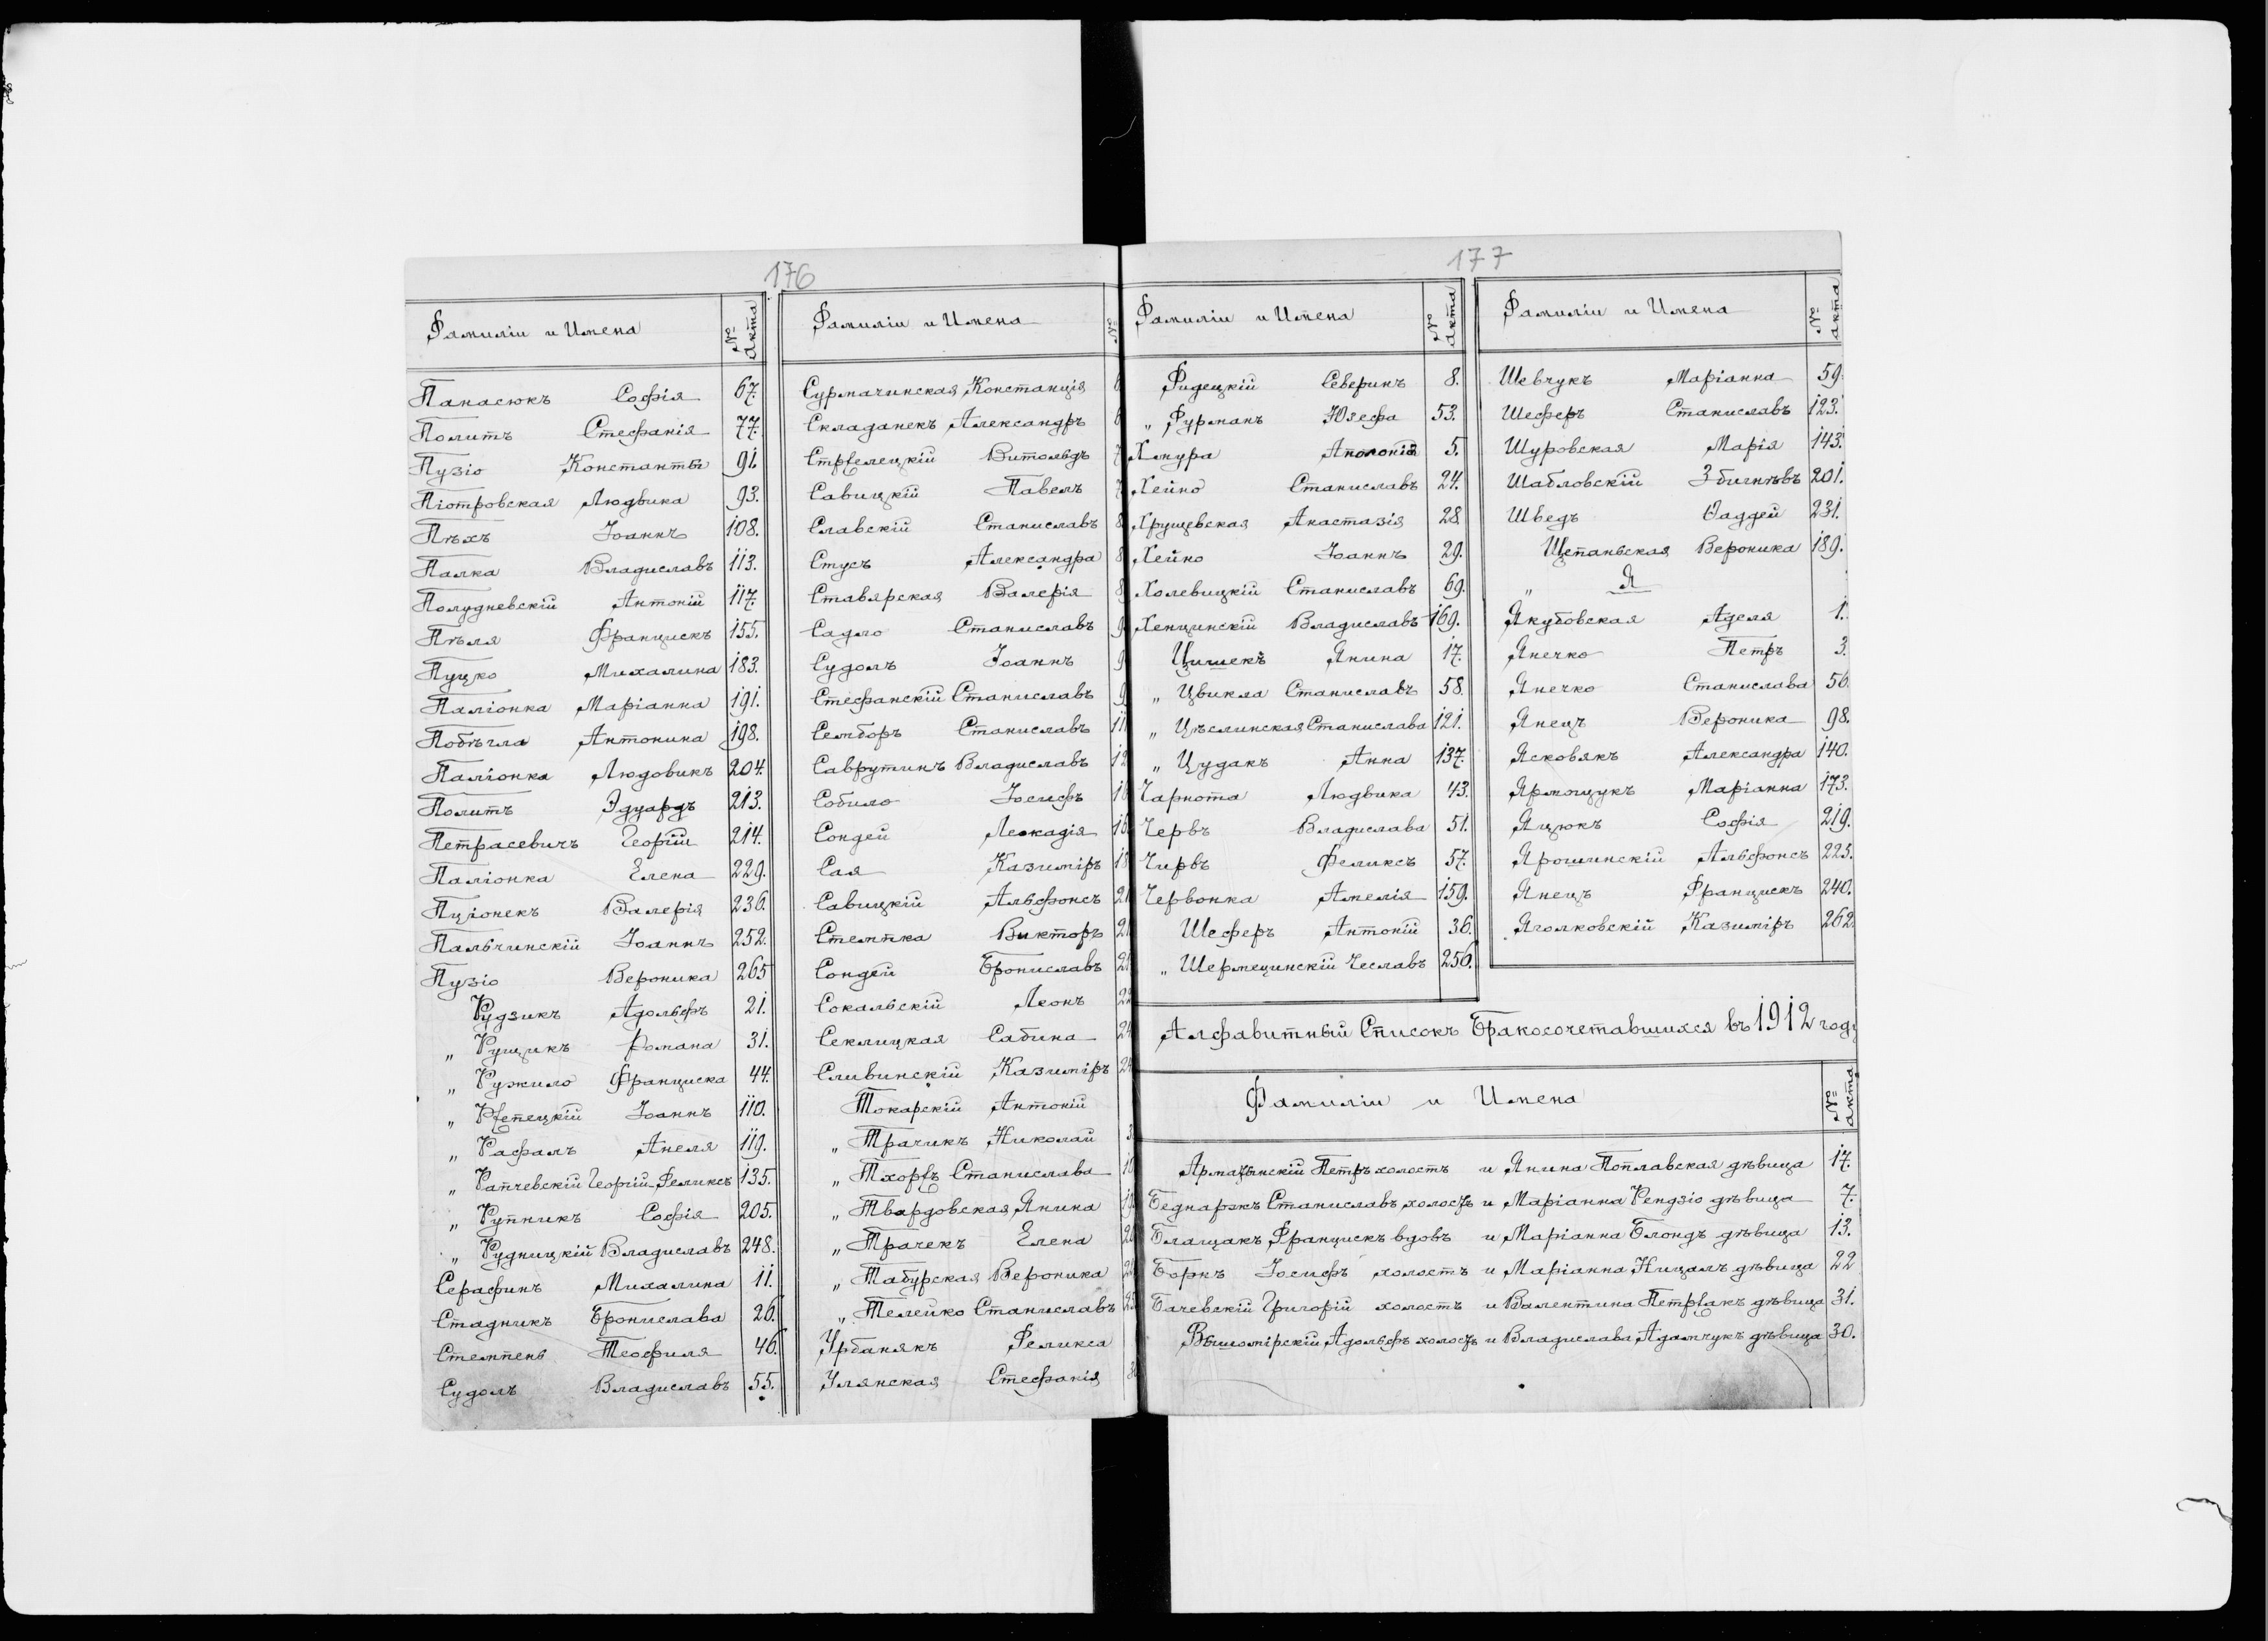 176
Фамиліи и Имена № Акта
Панасюкъ Софія 67.
Политъ Стефанія 77.
Пузіо Константы 91.
Піотровская Людвика 93.
Пѣхъ Іоаннъ 108.
Палка Владиславъ 113.
Полудневскій Антоній 117.
Пѣля Францискъ 155.
Пуцко Михалина 183.
Паліонка Маріанна 191.
Побѣгла Антонина 198.
Паліонка Людовикъ 204.
Политъ Эдуардъ 213.
Петрасевичъ Георгій 214.
Паліонка Елена 229.
Пціонекъ Валерія 236.
Пальчинскій Іоаннъ 252.
Пузіо Вероника 265
Рудзикъ Адольфъ 21.
„ Рущикъ Романа 31.
„ Ружило Франциска 44.
„ Рżепецкій Іоаннъ 110.
„ Рафалъ Анеля 119.
„ Рапчевскій Георгій Феликсъ 135.
„ Рупникъ Софія 205.
„ Рудницкій Владиславъ 248.
Серафинъ Михалина 11.
Стадникъ Брониславa 26.
Стемпень Теофиля 46.
Судолъ Владиславъ 55.
Фамиліи и Имена №
Сурмачинская Констанція
Складанекъ Александръ
Стрżелецкій Витольдъ
Савицкій Павелъ
Славскій Станиславъ
Стусъ Александра
Ставярская Валерія
Садло Станиславъ
Судолъ Іоаннъ
Стефанскій Станиславъ
Семборъ Станиславъ
Саврутинъ Владиславъ
Собило Іосифъ
Сондей Леокадія
Сая Казиміръ
Савицкій Альфонсъ
Стемпка Викторъ
Сондей Брониславъ
Сокальскій Леонъ
Секлицкая Сабина
Сливинскій Казиміръ
Токарскій Антоній
„ Трачикъ Николай
„ Тхорżъ Станислава
„ Твардовская Янина
„ Трачекъ Елена
„ Табурская Вероника
„ Телейко Станиславъ
Урбанякъ Феликса
Улянская Стефанія
177
Фамиліи и Имена № Акта
Фидецкій Северинъ 8.
„ Фурманъ Юзефа 53.
Хмура Аполонія 5.
Хейно Станиславъ 24.
Хрущевская Анастазія 28
Хейно Іоаннъ 29.
Холевицкій Станиславъ 69.
Хенцинскій Владиславъ 169.
Цишекъ Янина 17.
„ Цвикла Станиславъ 58.
„ Цѣслинская Станислава 121.
„ Цудакъ Анна 137.
Чарнота Людвика 43.
Червъ Владислава 51.
Чирвъ Феликсъ 57.
Червонка Амелія 159.
Шеферъ Антоній 36.
„ Шермецинскій Чеславъ 256.
Фамиліи и Имена № акта
Шевчукъ Маріанна 59.
Шеферъ Станиславъ 123.
Шуровская Марія 143.
Шабловскій Збигнѣвъ 201.
Шведъ Ѳаддей 231.
Щепаньская Вероника 189.
„ Я
Якубовская Аделя 1.
Янечко Петръ 3.
Янечко Станислава 56.
Янецъ Вероника 98.
Ясковякъ Александра 140.
Ярмощукъ Маріанна 173.
Яцюкъ Софія 219.
Ярошинскій Альфонсъ 225.
Янецъ Францискъ 240.
Яголковскій Казиміръ 262.
Алфавитный Списокъ Бракосочетавшихся въ 1912 году
Фамиліи и Имена № акта
Арматынскій Петръ холостъ и Янина Поплавская дѣвица 17.
Беднарżъ Станиславъ холостъ и Маріанна Рендзіо дѣвица 7.
Блащакъ Францискъ вдовъ и Маріанна Блондъ дѣвица 13.
Боркъ Іосифъ холостъ и Маріанна Ницалъ дѣвица 22
Бачевскій Григорій холостъ и Валентина Петрżакъ дѣвица 31.
Вышомірскій Адольфъ холостъ и Владислава Адамчукъ дѣвица 30.